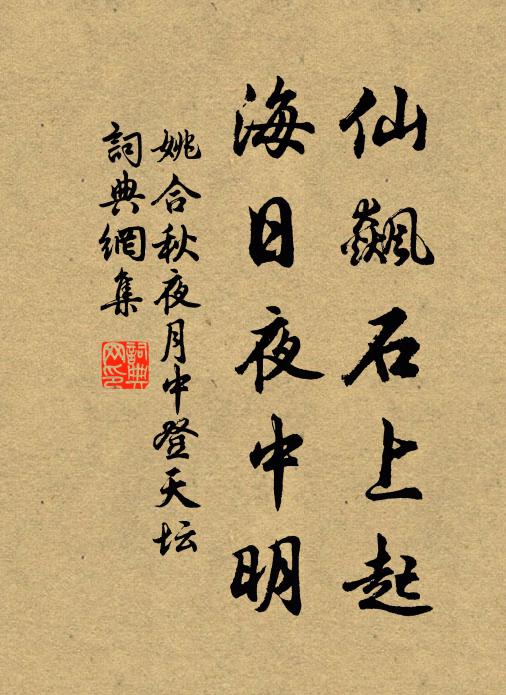 仙飙石上起
海日夜中明
姚合秋夜月中登天坛
詞典網集
詞典网印